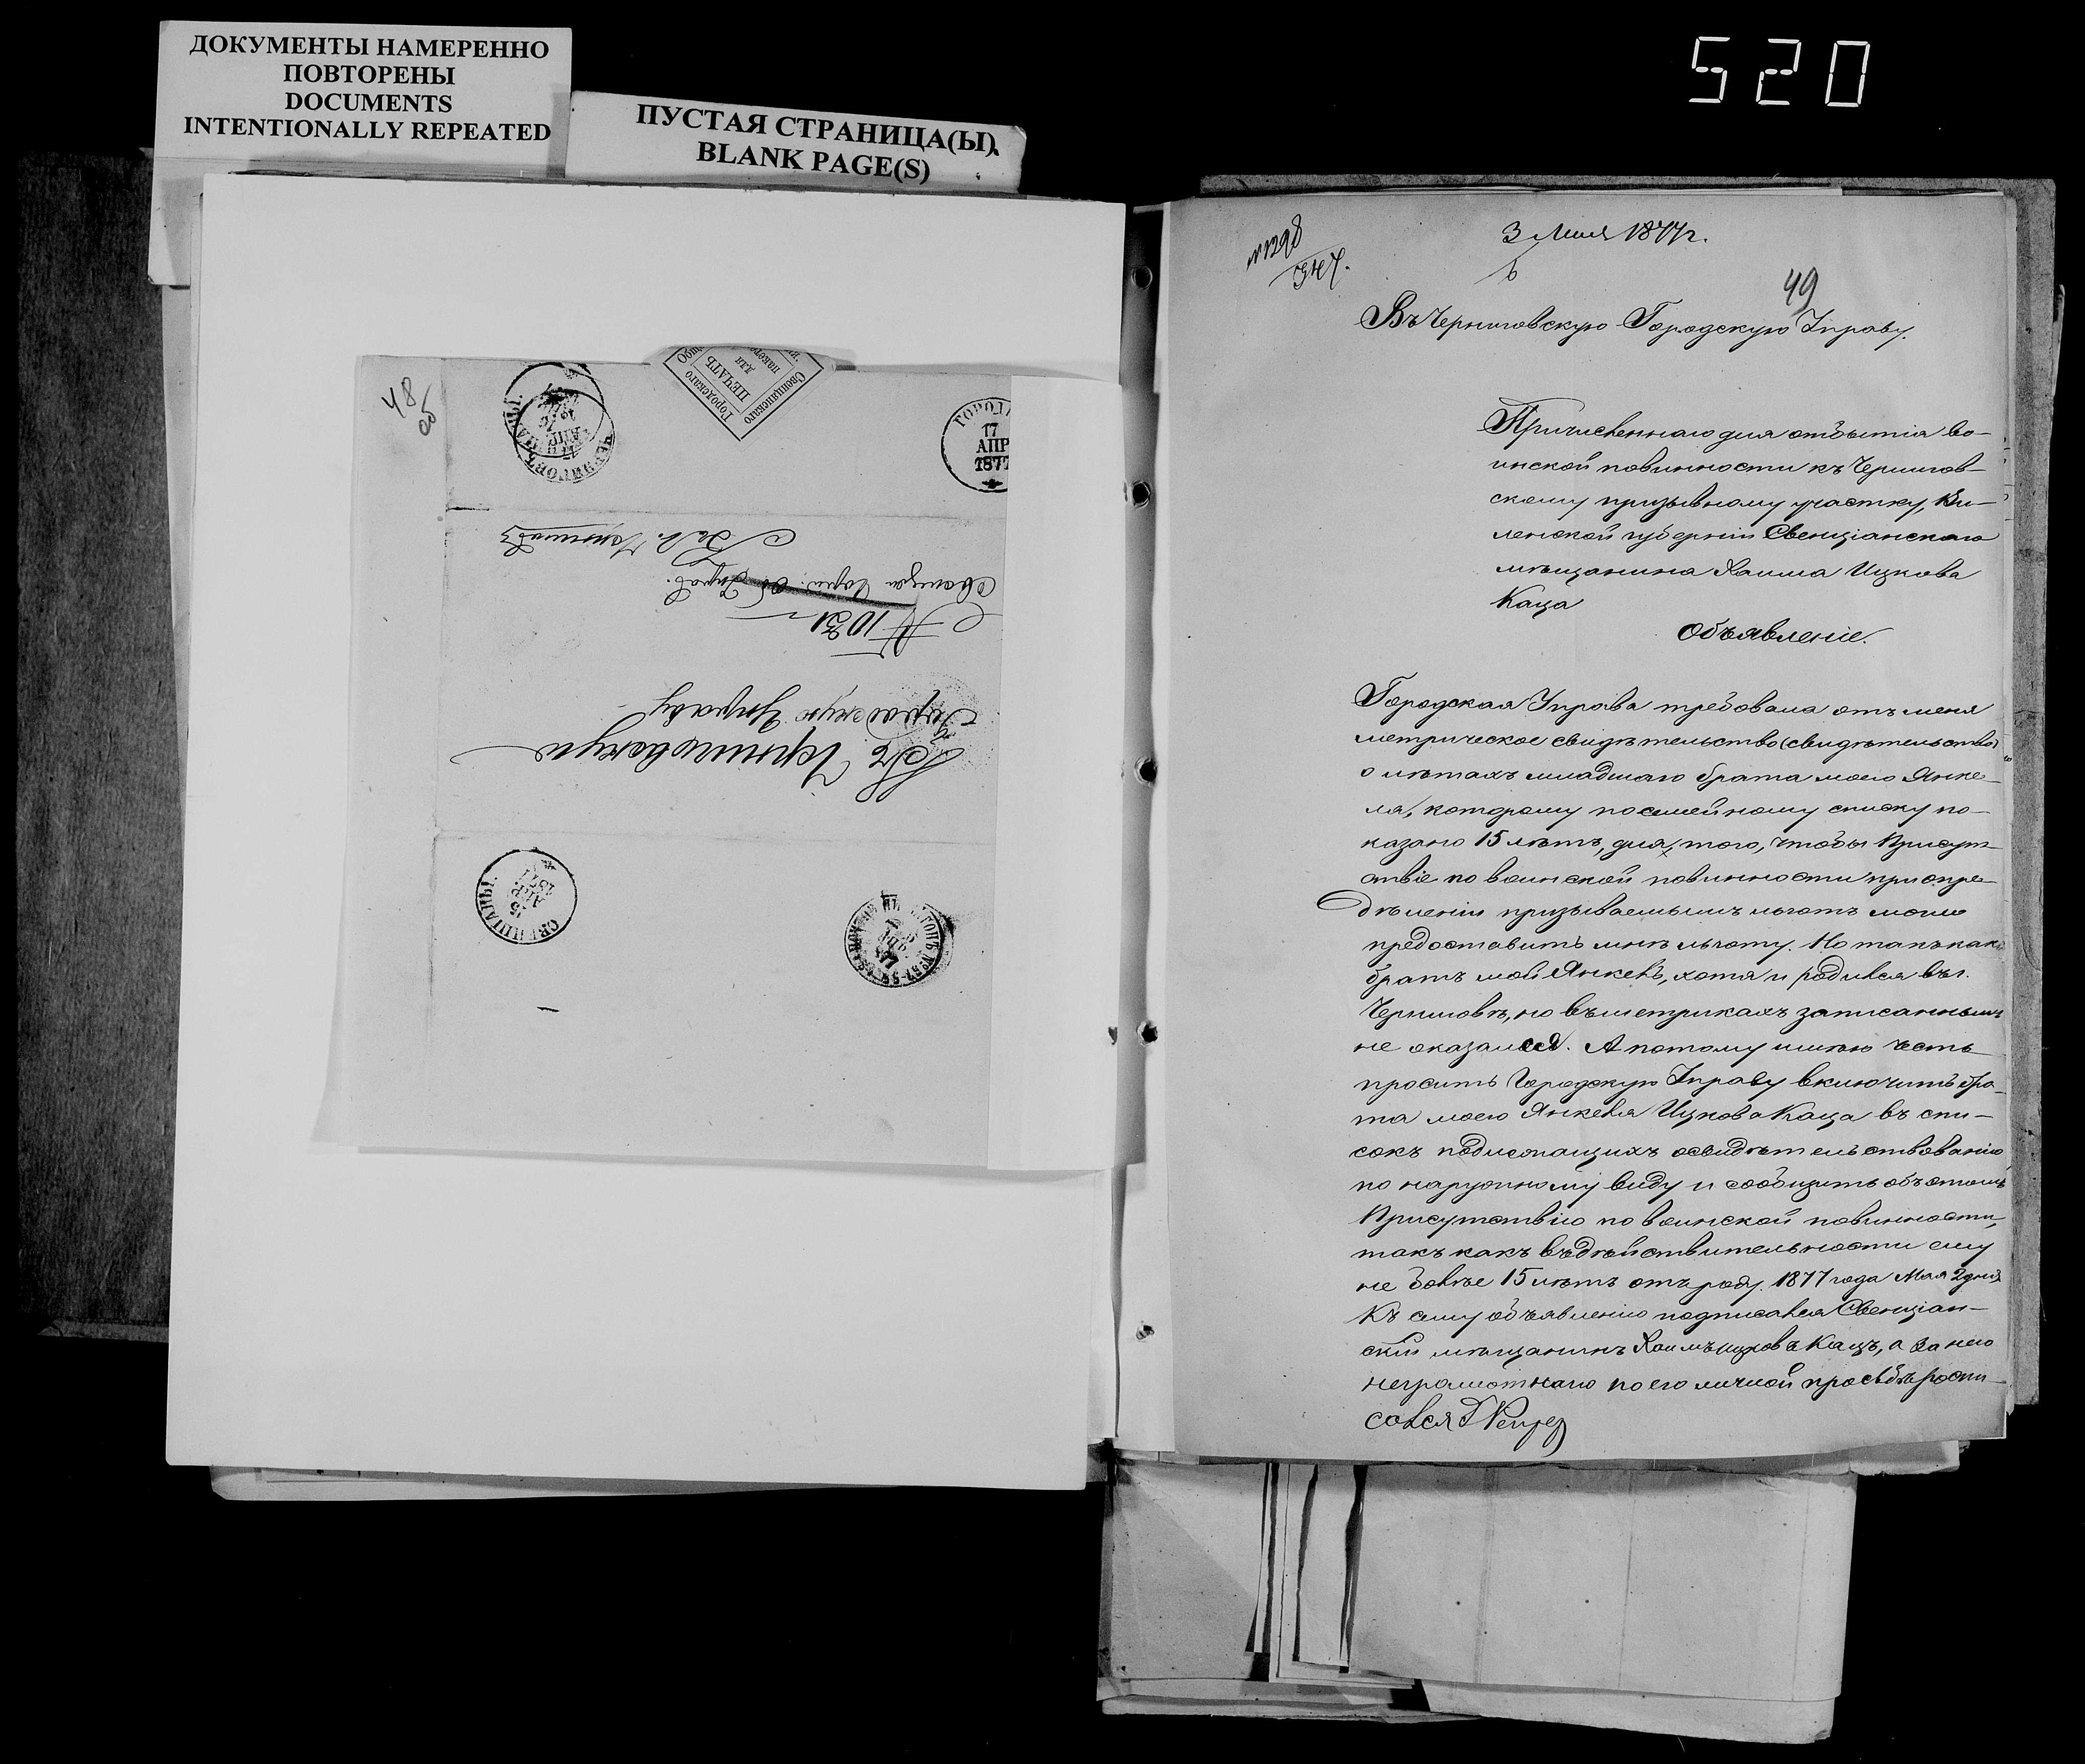 ДОКУМЕНТЫ НАМЕРЕННО
ПОВТОРЕНЫ
DOCUMENTS
INTENTIONALLY REPEATED
ПУСТАЯ СТРАНИЦА(Ы)
BLANK PAGE(S)
520
48
об
Свенцянскаго
Городскаго
ПЕЧАТЬ
для
ГОРОД
17
АПР
1877
Зав. Чернигов
№ 1031
Въ Черниговскую
Городскую Управу
СВЕНЦЯНЫ
15
АПР
1877
№ 1298
347.
3 Мая 1877 г.
49
Въ Черниговскую Городскую Управу.
Причисленнаго для отбытія во-
инской повинности къ Чернигов-
скому призывному участку, Ви-
ленской губерніи Свенціанскаго
мѣщанина Хаима Ицкова
Каца
Объявленіе.
Городская Управа требовала отъ меня
метрическое свидѣтельство (свидѣтельство)
о лѣтахъ младшаго брата моего Янке-
ля, которому по семейному списку по-
казано 15 лѣтъ, для того, чтобы Присут-
ствіе по воинской повинности при опре-
дѣленіи призываемымъ льготъ могло
предоставить мнѣ льготу. Но такъ какъ
братъ мой Янкель, хотя и родился въ г.
Черниговѣ, но въ метрикахъ записаннымъ
не оказался. А потому имѣю честь
просить Городскую Управу включить бра-
та моего Янкеля Ицкова Каца въ спи-
сокъ подлежащихъ освидѣтельствованію
по наружному виду и сообщить объ этомъ
Присутствію по воинской повинности,
такъ какъ въ дѣйствительности ему
не болѣе 15 лѣтъ отъ роду. 1877 года Мая 2 дня
Къ сему объявленію подписался Свенціан-
скій мѣщанинъ Хаимъ Ицковъ Кацъ, а за него
неграмотнаго по его личной просьбѣ роспи-
сался